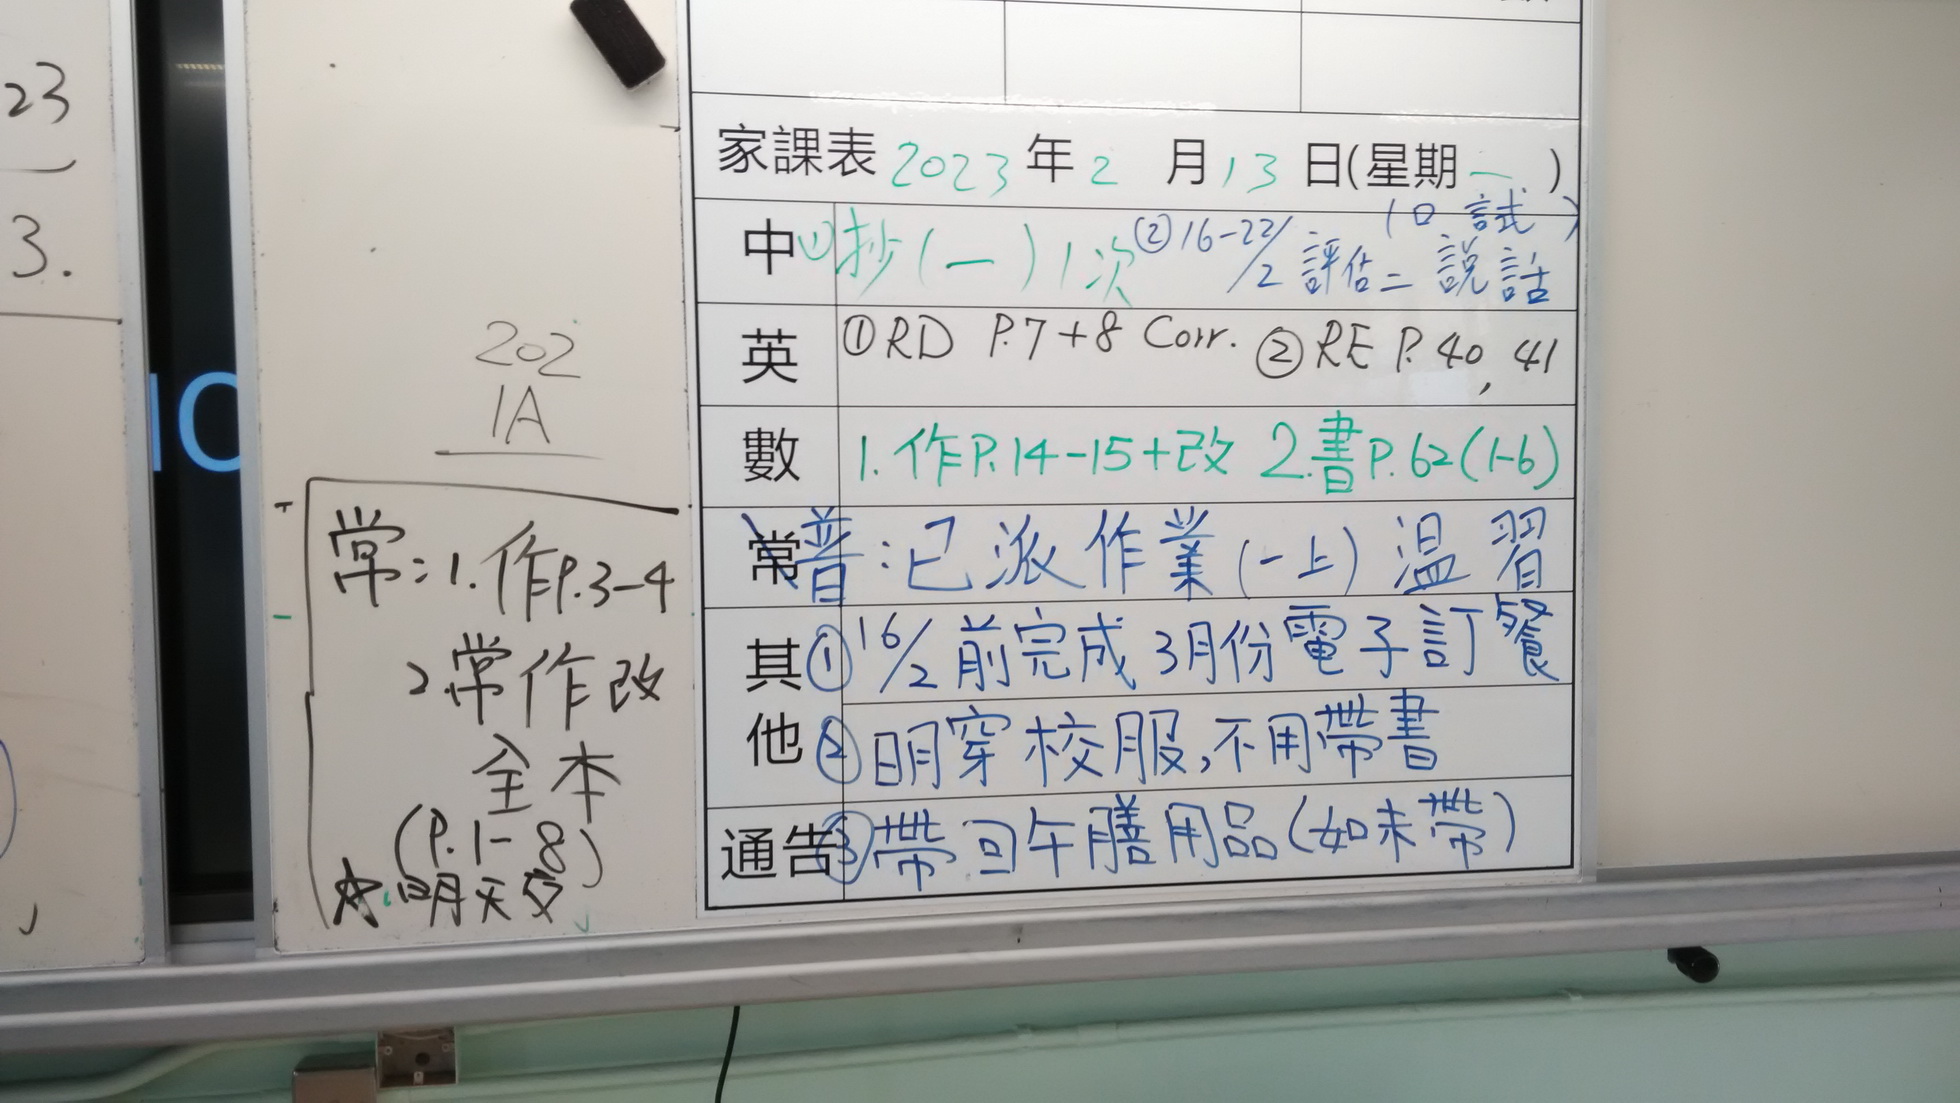 23
3.
202
1A
常:1.作P.3-4
2.常作改
全本
(P.1-8)
☆明天交
家課表 2023 年 2 月 13 日(星期一)
中 ①抄(一)1次 ②16-22/2 評估二 説話 (口試)
英 ①RD P.7+8 Corr. ②RE P.40, 41
數 1.作P.14-15+改 2.書P.62(1-6)
常 普:已派作業(一上)温習
其他 ①16/2前完成3月份電子訂餐
②明穿校服,不用帶書
通告 ③帶回午膳用品(如未帶)